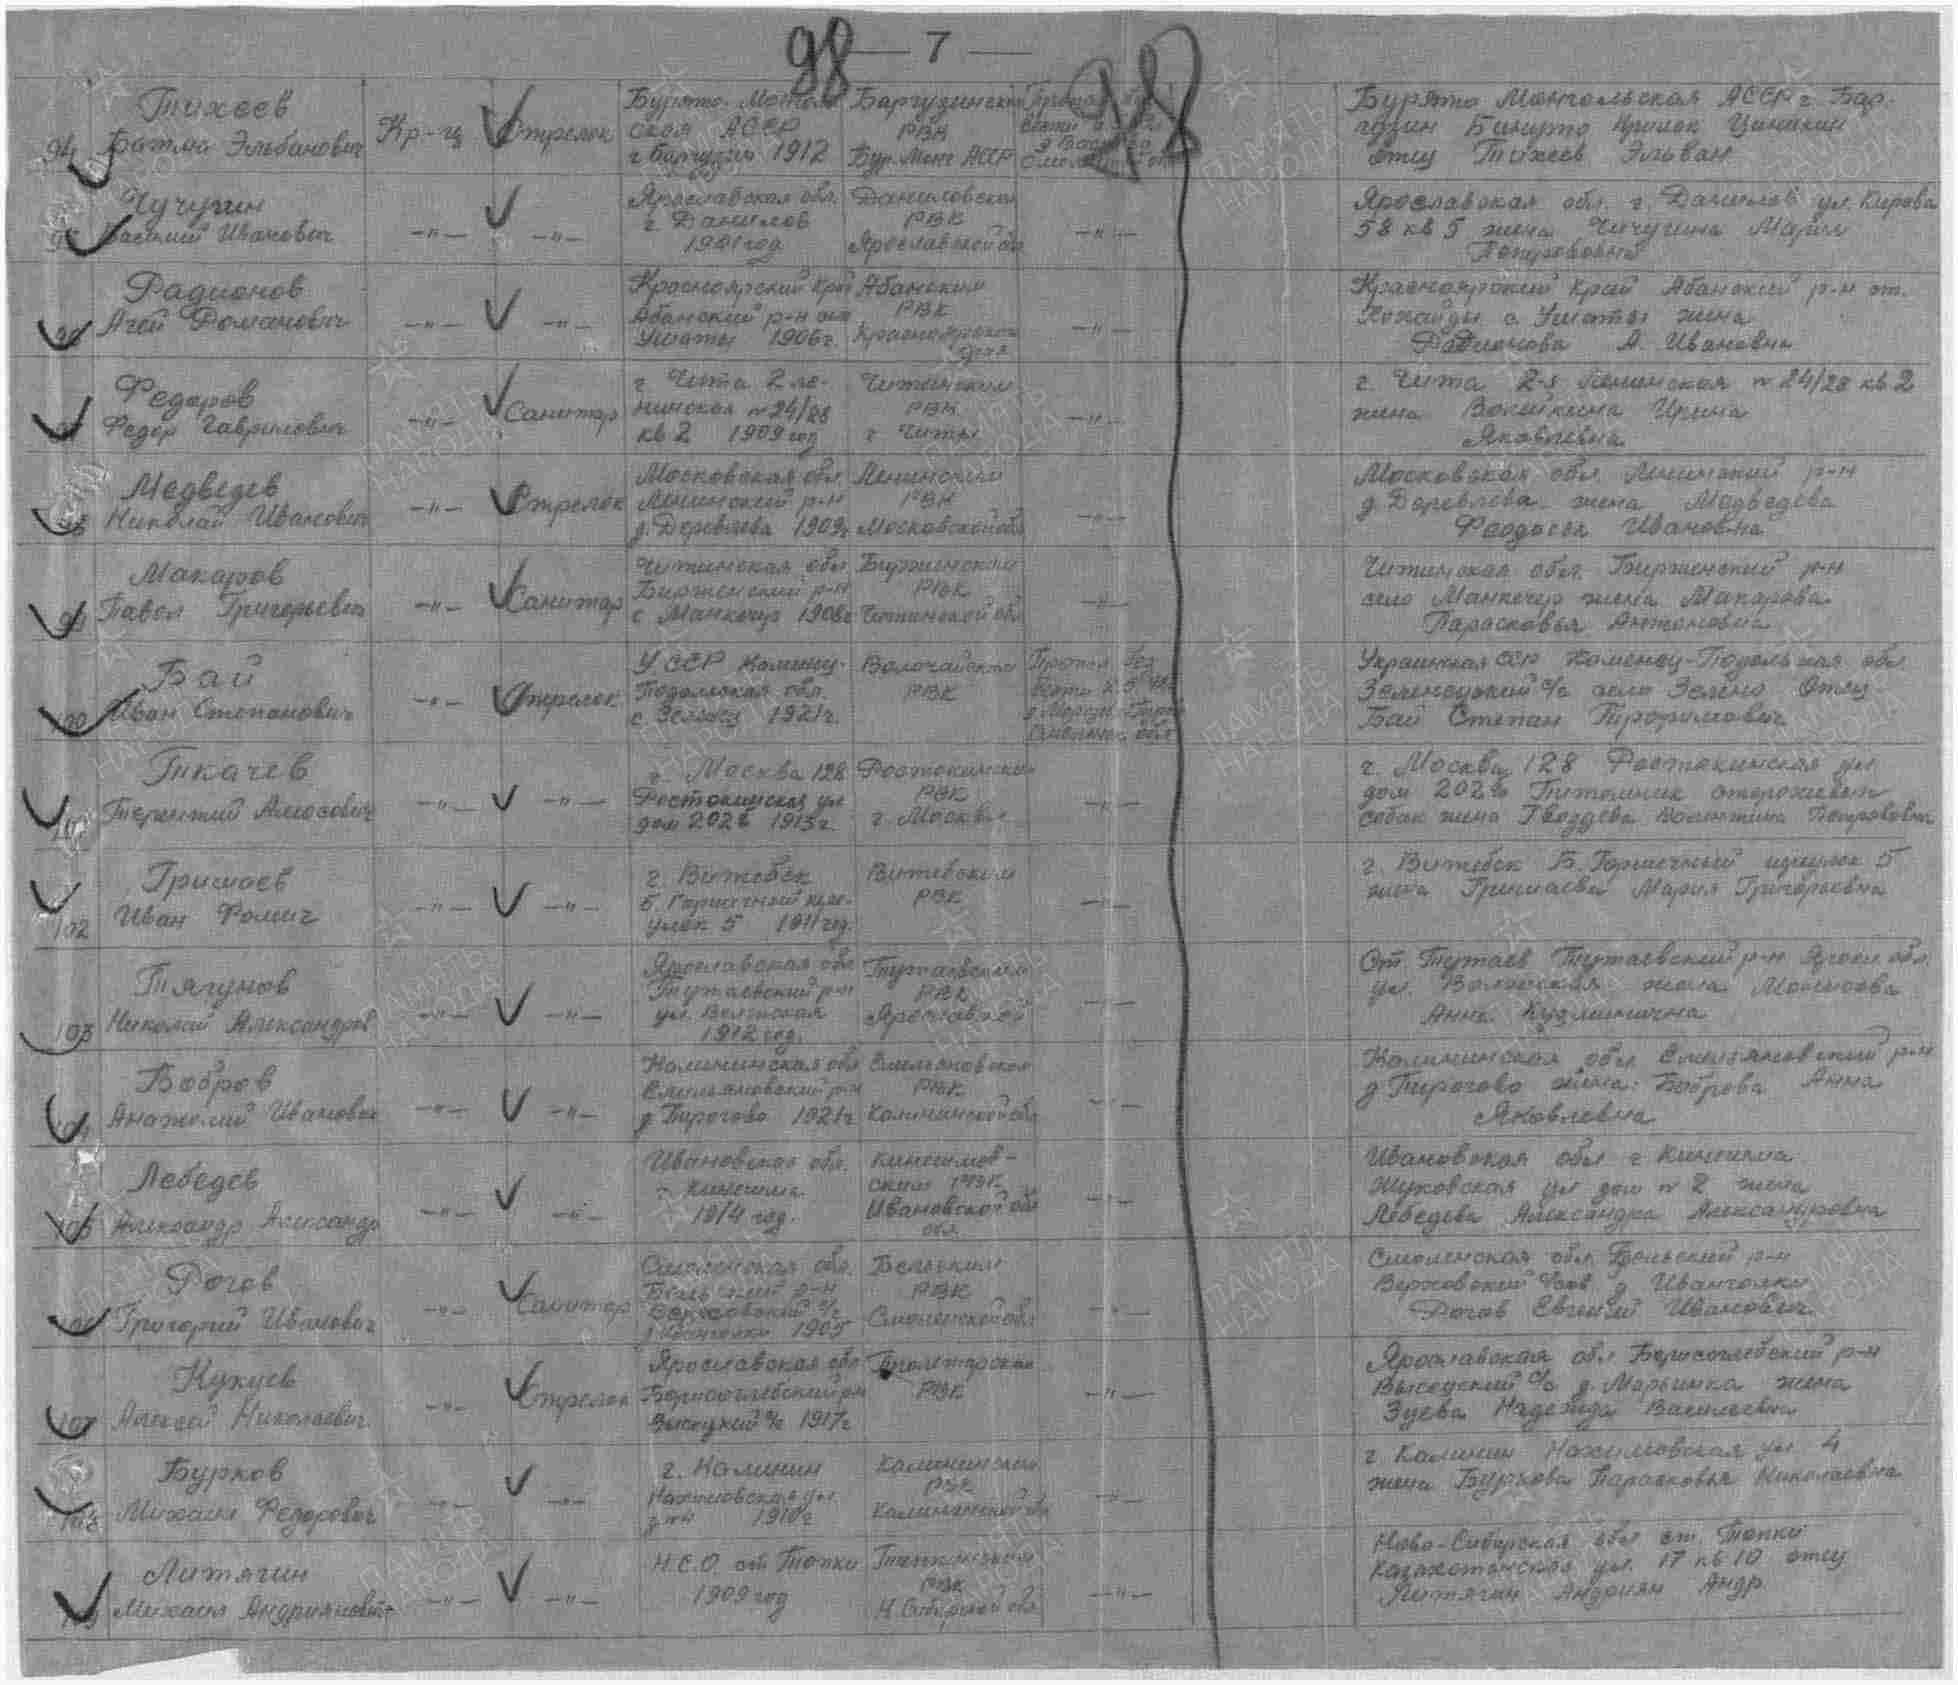 98 — 7 —
94 Тихеев
Батма Эльбанович
Кр-ц
Стрелок
Бурято-Монголь
ская АССР
г Баргузин 1912
Баргузинским
РВК
Бур. Монг АССР
Бурято Монгольская АССР г. Бар-
гузин
отец Тихеев Эльбан
95 Чучугин
Василий Иванович
—"— —"—
Ярославская обл.
г. Данилов
1901 год
Даниловским
РВК
Ярославской обл
—"—
Ярославская обл. г. Данилов ул. Кирова
58 кв 5 жена Чучугина Мария
96 Радионов
Агей Романович
—"— —"—
Красноярский край
Абанский р-н
Ушаты 1906 г.
Абанским
РВК
Красноярского
края
—"—
Красноярский край Абанский р-н ст.
с. Ушаты жена
Радионова А. Ивановна
97 Федоров
Федор Гаврилович
—"—
Санитар
г. Чита 2 ле-
нинская №24/28
кв 2 1909 год
Читинским
РВК
г Читы
—"—
г. Чита 2-я Ленинская №24/28 кв 2
жена Ирина
Яковлевна
98 Медведев
Николай Иванович
—"—
Стрелок
Московская обл.
Ленинский р-н
д. Деревлева 1909г
Ленинским
РВК
Московской обл
—"—
Московская обл Ленинский р-н
д. Деревлева жена Медведева
Феодосья Ивановна
99 Макаров
Павел Григорьевич
—"—
Санитар
Читинская обл.
р-н
с Манкечур 1906г
РВК
Читинской обл
—"—
Читинская обл. р-н
село Манкечур жена Макарова
Парасковья Антоновна
100 Бай
Иван Степанович
—"—
Стрелок
УССР Каменец-
Подольская обл.
с. Зеленец 1921г.
Волочайским
РВК
Пропал без
вести
Смоленск. обл
Украинская ССР Каменец-Подольская обл.
с/с село Зелено Отец
Бай Степан Трофимович
101 Ткачев
Терентий Амосович
—"— —"—
г. Москва 128
Ростокинская ул
дом 202б 1913г.
Ростокинским
РВК
г. Москвы
—"—
г. Москва 128 Ростокинская ул
дом 202б Питомник
собак жена Гвоздева Валентина Петровна
102 Гришаев
Иван Фомич
—"— —"—
г. Витебск
Б. Горшечный пере-
улок 5 1911 год.
Витебским
РВК
—"—
г. Витебск Б. Горшечный 5
жена Гришаева Мария Григорьевна
103 Тягунов
Николай Александров
—"— —"—
Ярославская обл
Тутаевский р-н
ул. Волжская
1912 год.
Тутаевским
РВК
Ярославской
—"—
Ст. Тутаев Тутаевский р-н Яросл. обл.
ул. Волжская жена
Анна Кузминична
104 Бобров
Анатолий Иванович
—"— —"—
Калининская обл
Емельяновский р-н
д. Пирогово 1921г
Емельяновским
РВК
Калининской обл
—"—
Калининская обл Емельяновский р-н
д Пирогово жена: Боброва Анна
Яковлевна
105 Лебедев
Александр Александр
—"— —"—
Ивановская обл.
г. Кинешма
1914 год.
Кинешмов-
ским РВК
Ивановской обл
обл.
—"—
Ивановская обл г Кинешма
Жуковская ул дом №2 жена
Лебедева Александра Александровна
106 Рогов
Григорий Иванович
—"—
Санитар
Смоленская обл.
Бельский р-н
1905
Бельским
РВК
Смоленской обл
—"—
Смоленская обл Бельский р-н
Верховский с/сов д.
Рогов Евгений Иванович
107 Кукуев
Алексей Николаевич
—"—
Стрелок
Ярославская обл
Борисоглебский р-н
с/с 1917г
Пролетарским
РВК
—"—
Ярославская обл Борисоглебский р-н
с/с д. Марьинка жена
Зуева Надежда Васильевна
108 Бурков
Михаил Федорович
—"— —"—
г. Калинин
Нахимовская ул
д №4 1910г
Калининским
РВК
Калининской обл
—"—
г Калинин Нахимовская ул 4
жена Буркова Парасковья Николаевна
109 Литягин
Михаил Андриянович
—"— —"—
Н.С.О. ст Топки
1909 год
Топкинским
РВК
Н. Сибирской обл
—"—
Ново-Сибирская обл ст. Топки
ул. 17 кв 10 отец
Литягин Андриян Андр.
ПАМЯТЬ
НАРОДА